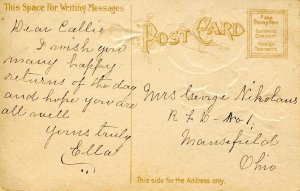 This Space for Writing Messages
Dear Callie
I wish you
many happy
returns of the day
and hope you are
all well
yours truly
Ella
POST CARD
Place
Stamp Here
Domestic
One cent
Foreign
Two cents
Mrs George Nikolaus
R F D No 1,
Mansefield
Ohio
This side for the Address only.